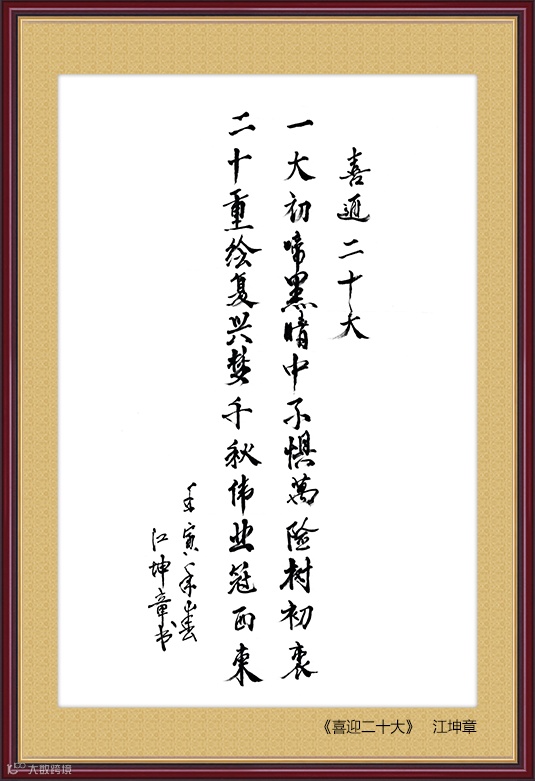 喜迎二十大
一大初啼黑暗中不惧萬险树初衷
二十重绘复兴梦千秋伟业冠西東
壬寅年春
江坤章书
《喜迎二十大》 江坤章
大数跨境